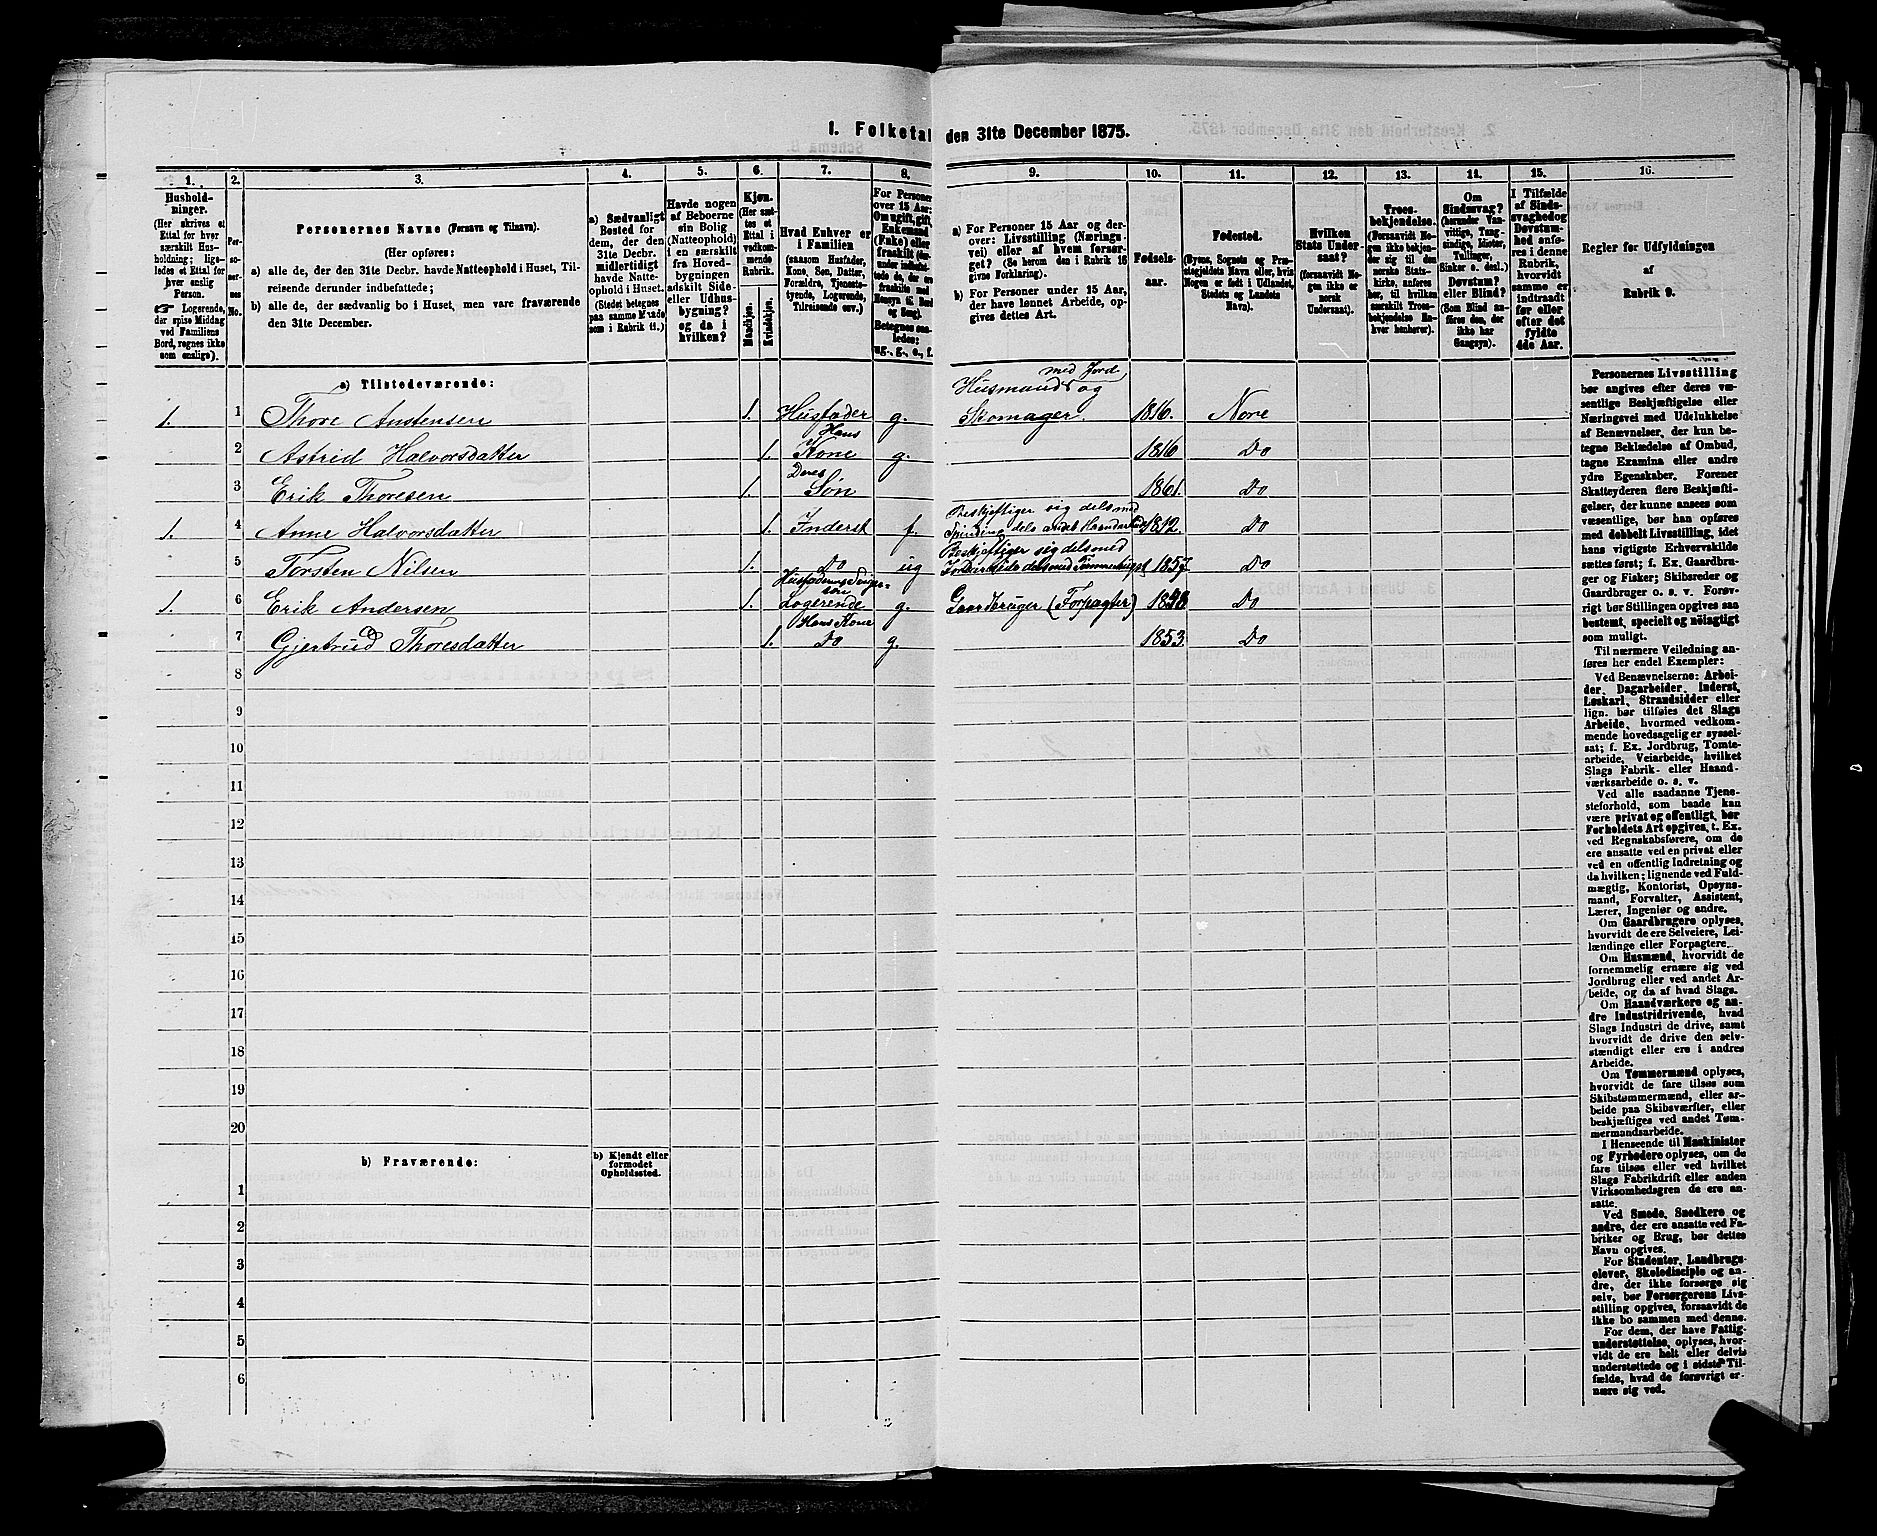 1. Folketal den 31te December 1875.
1. 2. 3. 4. 5. 6. 7. 8. 9. 10. 11. 12. 13. 14. 15. 16.
Hushold-
ninger.
(Her skrives et
Ettal for hver
særskilt Hus-
holdning; lige-
ledes et Ettal for
hver enslig
Person.
☞ Logerende,
der spise Middag
ved Familiens
Bord, regnes ikke
som enslige).
Per-
so-
ner-
nes
No.
Personernes Navne (Fornavn og Tilnavn).
(Her opføres:
a) alle de, der den 31te Decbr. havde Natteophold i Huset, Til-
reisende derunder indbefattede;
b) alle de, der sædvanlig bo i Huset, men vare fraværende
den 31te December.
a) Sædvanligt
Bosted for
dem, der den
31te Decbr.
midlertidigt
havde Natte-
ophold i Huset.
(Stedet betegnes
paa samme Maade
som i Rubrik 11.)
Havde nogen
af Beboerne
sin Bolig
(Natteophold)
i en særskilt
fra Hoved-
bygningen
adskilt Side-
eller Udhus-
bygning?
og da i
hvilken?
Kjøn.
(Her sæt-
tes et
Ettal i
vedkom-
mende
Rubrik.
Mandkjøn.
Kvindekjøn.
Hvad Enhver er
i Familien
(saasom Husfader,
Kone, Søn, Datter,
Forældre, Tjeneste-
tyende, Logerende,
Tilreisende osv.)
For Personer
over 15 Aar:
Om ugift, gift
Enkemand
(Enke) eller
fraskilt
Betegnes saa-
ledes:
ug., g., e., f.
a) For Personer 15 Aar og der-
over: Livsstilling (Nærings-
vei) eller af hvem forsør-
get? (Se herom den i Rubrik 16
givne Forklaring).
b) For Personer under 15 Aar,
der have lønnet Arbeide, op-
gives dettes Art.
Fødsels-
aar.
Fødested.
(Byens, Sognets og Præ-
stegjeldets Navn eller, hvis
Nogen er født i Udlandet,
Stedets og Landets
Navn).
Hvilken
Stats Under-
saat?
(forsaavidt No-
gen ikke er
norsk
Undersaat).
Troes-
bekjendelse.
(Forsaavidt No-
gen ikke bekjen-
der sig til den
norske Stats-
kirke, anføres
her, til hvilken
særskilt Troes-
bekjendelse En-
hver henhører).
Om
Sindssvag?
(herunder Van-
vittige, Tung-
sindige, Idioter,
Tullinger,
Sinker o. desl.)
Døvstum?
eller Blind?
(Som Blind an-
føres den, der
ikke har
Gangsyn).
I Tilfælde
af Sinds-
svaghed og
Døvstum-
hed anfø-
res i denne
Rubrik,
hvorvidt
samme er
indtraadt
før eller
efter det
fyldte
4de Aar.
Regler før Udfyldningen
af
Rubrik 9.
a) Tilstedeværende:
1. 1 Thore Austensen 1. Husfader g. Husmand med Jord og Skomager. 1816. Nore
2 Astrid Halvorsdatter 1. Hans Kone g. 1816 Do
3 Erik Thoresen 1. Deres Søn 1861. Do
1. 4 Anne Halvorsdatter 1. Inderst f. Beskjeftiger sig dels med Spinding dels andet Haandarbeide 1812. Do
5 Torsten Nilsen 1. Do ug Beskjeftiger sig dels med 1857 Do
1. 6 Erik Andersen 1. Logerende g. Gaardbruger (Forpagter) Do
7 Gjertrud Thoresdatter 1. Hans Kone Do g. 1853. Do
8
9
10
11
12
13
14
15
16
17
18
19
20
b) Fraværende:
b) Kjendt eller
formodet
Opholdssted.
1
2
3
4
5
6
Personernes Livsstilling
bør angives efter deres væ-
sentlige Beskjæftigelse eller
Næringsvei med Udelukkelse
af Benævnelser, der kun be-
tegne Beklædelse af Ombud,
tagne Examina eller andre
ydre Egenskaber. Forener
Skatteyderen flere Beskjæfti-
gelser, der kunne ansees som
væsentlige, bør han opføres
med dobbelt Livsstilling, idet
hans vigtigste Erhvervskilde
sættes først; f. Ex. Gaardbru-
ger og Fisker; Skibsreder og
Gaardbruger o. s. v. Forøv-
rigt bør Stillingen opgives saa
bestemt, specielt og nøiagtigt
som muligt.
Til nærmere Veiledning an-
føres her endel Exempler:
Ved Benævnelserne: Arbei-
der, Dagarbeider, Inderst,
Løskarl, Strandsidder eller
lign. bør tilføies det Slags
Arbeide, hvormed vedkom-
mende hovedsagelig er syssel-
sat; f. Ex. Jordbrug, Tomte-
arbeide, Veiarbeide, hvilket
Slags Fabrik- eller Haand-
værksarbeide o. s. v.
Ved alle saadanne Tjene-
steforhold, som baade kan
være privat og offentligt, bør
Forholdets Art opgives, t. Ex.
ved Regnskabsførere, om de
ere ansatte ved en privat eller
ved en offentlig Indretning og
da hvilken; lignende ved Fuld-
mægtig, Kontorist, Opsyns-
mand, Forvalter, Assistent,
Lærer, Ingeniør og andre.
Om Gaardbrugere oplyses,
hvorvidt de ere Selveiere, Lei-
lændinge eller Forpagtere.
Om Husmænd, hvorvidt de
fornemmelig ernære sig ved
Jordbrug eller ved andet Ar-
beide, og da af hvad Slags.
Om Haandværkere og an-
dre Industridrivende, hvad
Slags Industri de drive, samt
hvorvidt de drive den selv-
stændigt eller ere i andres
Arbeide.
Om Tømmermænd oplyses,
hvorvidt de fare tilsøs som
Skibstømmermænd, eller ar-
beide paa Skibsværfter, eller
beskjæftiges ved andet Tøm-
mermandsarbeide.
I Henseende til Maskinister
og Fyrbødere oplyses, om de
fare tilsøs eller ved hvilket
Slags Fabrikdrift eller anden
Virksomhedsgren de ere an-
satte.
Ved Smede, Snedkere og
andre, der ere ansatte ved Fa-
briker og Brug, bør dettes
Navn opgives.
For Studenter, Landbrugs-
elever, Skoledisciple og an-
dre, der ikke forsørge sig
selv, bør Forsørgerens Livs-
stilling opgives, forsaavidt de
ikke bo sammen med denne.
For dem, der have Fattig-
understøttelse, oplyses, hvor-
vidt de ere helt eller delvis
understøttede og i sidste Til-
fælde, hvad de forøvrigt er-
nære sig ved.